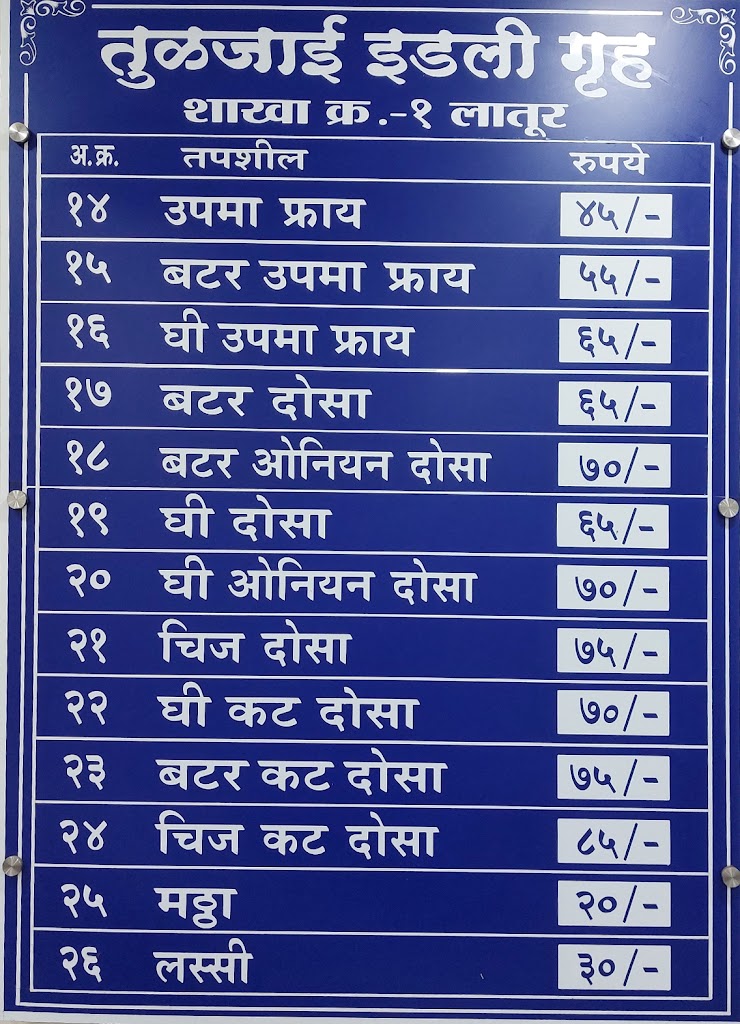 तुळजाई इडली गृह
शाखा क्र.-१ लातूर
अ.क्र. तपशील रुपये
१४ उपमा फ्राय ४५/-
१५ बटर उपमा फ्राय ५५/-
१६ घी उपमा फ्राय ६५/-
१७ बटर दोसा ६५/-
१८ बटर ओनियन दोसा ७०/-
१९ घी दोसा ६५/-
२० घी ओनियन दोसा ७०/-
२१ चिज दोसा ७५/-
२२ घी कट दोसा ७०/-
२३ बटर कट दोसा ७५/-
२४ चिज कट दोसा ८५/-
२५ मठ्ठा २०/-
२६ लस्सी ३०/-